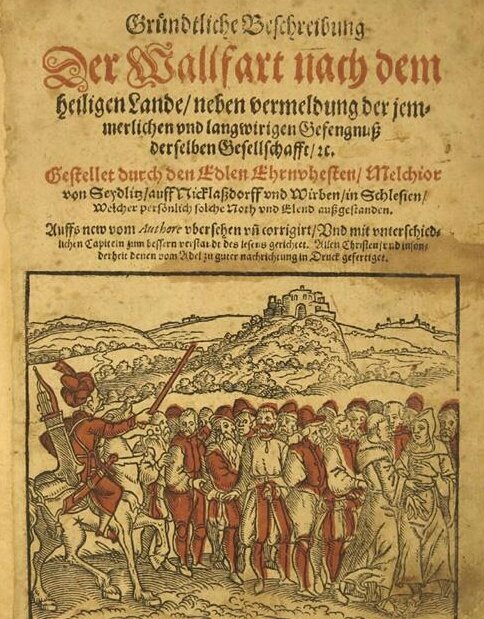 Gründtliche Beschreibung
Der Wallfart nach dem
heiligen Lande/ neben vermeldung der jem-
merlichen vnd langwirigen Gefengnuß
derselben Gesellschafft/ ꝛc.
Gestellet durch den Edlen Ehrnvhesten/ Melchior
von Seydlitz/ auff Nicklaßdorff vnd Wirben/ in Schlesien/
Welcher persönlich solche Noth vnd Elend außgestanden.
Auffs new vom Authore vbersehen vñ corrigirt/ Vnd mit vnterschied-
lichen Capiteln zum bessern verstande des lesens gerichtet. Allen Christen/ vnd inson-
derheit denen vom Adel zu guter nachrichtung in Druck gefertiget.